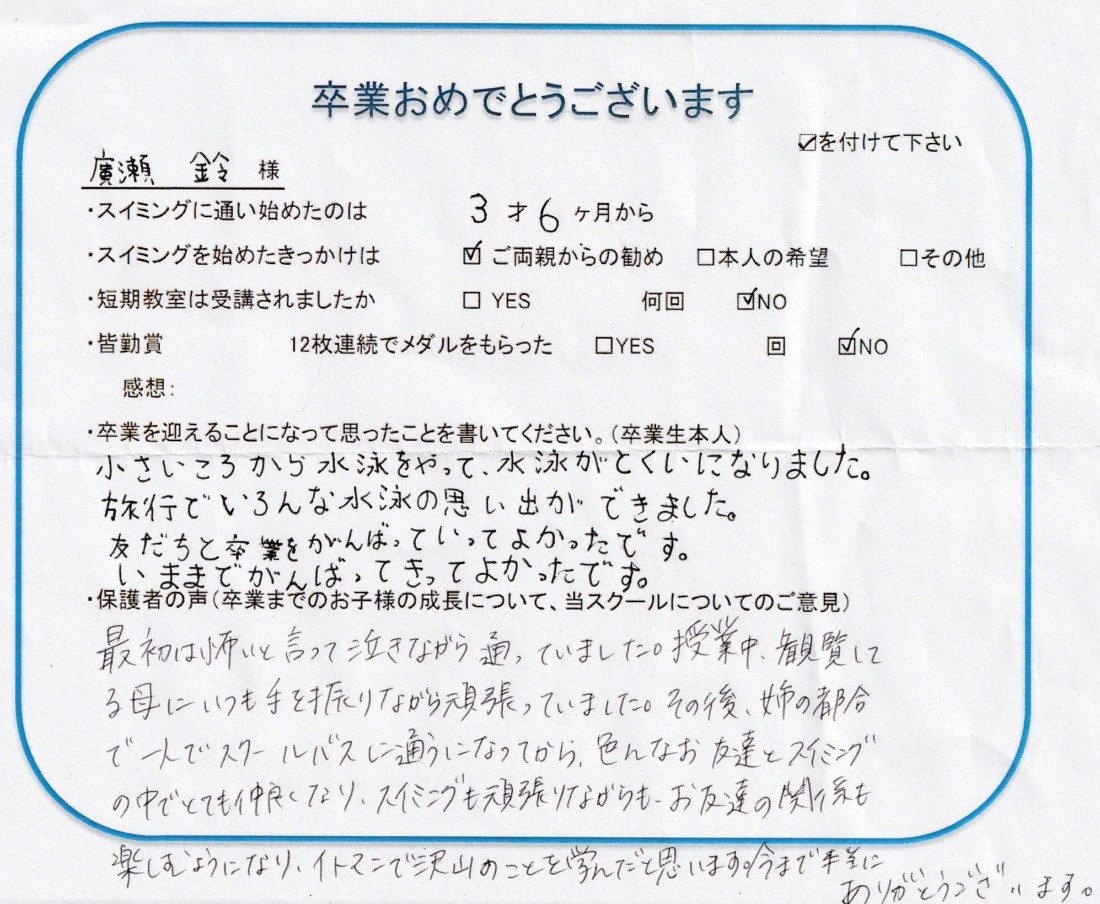 卒業おめでとうございます
☑を付けて下さい
廣瀬 鈴 様
・スイミングに通い始めたのは 3 才 6 ヶ月から
・スイミングを始めたきっかけは ☑ ご両親からの勧め □本人の希望 □その他
・短期教室は受講されましたか □ YES 何回 ☑NO
・皆勤賞 12枚連続でメダルをもらった □YES 回 ☑NO
感想:
・卒業を迎えることになって思ったことを書いてください。(卒業生本人)
小さいころから水泳をやって、水泳がとくいになりました。
旅行でいろんな水泳の思い出ができました。
友だちと卒業をがんばっていってよかったです。
いままでがんばってきってよかったです。
・保護者の声(卒業までのお子様の成長について、当スクールについてのご意見)
最初は怖いと言って泣きながら通っていました。授業中、観覧して
る母にいつも手を振りながら頑張っていました。その後、姉の都合
で一人でスクールバスに通うになってから、色んなお友達とスイミング
の中でとても仲良くなり、スイミングも頑張りながらも、お友達の関係も
楽しむようになり、イトマンで沢山のことを学んだと思います。今まで本当に
ありがとうございます。